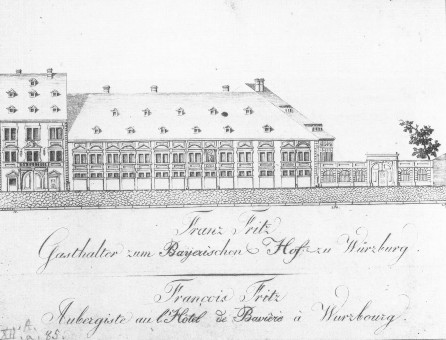 Franz Fritz
Gasthalter zum Bayerischen Hof zu Würzburg.
François Fritz
Aubergiste au l'Hôtel de Bavière à Wurzbourg.